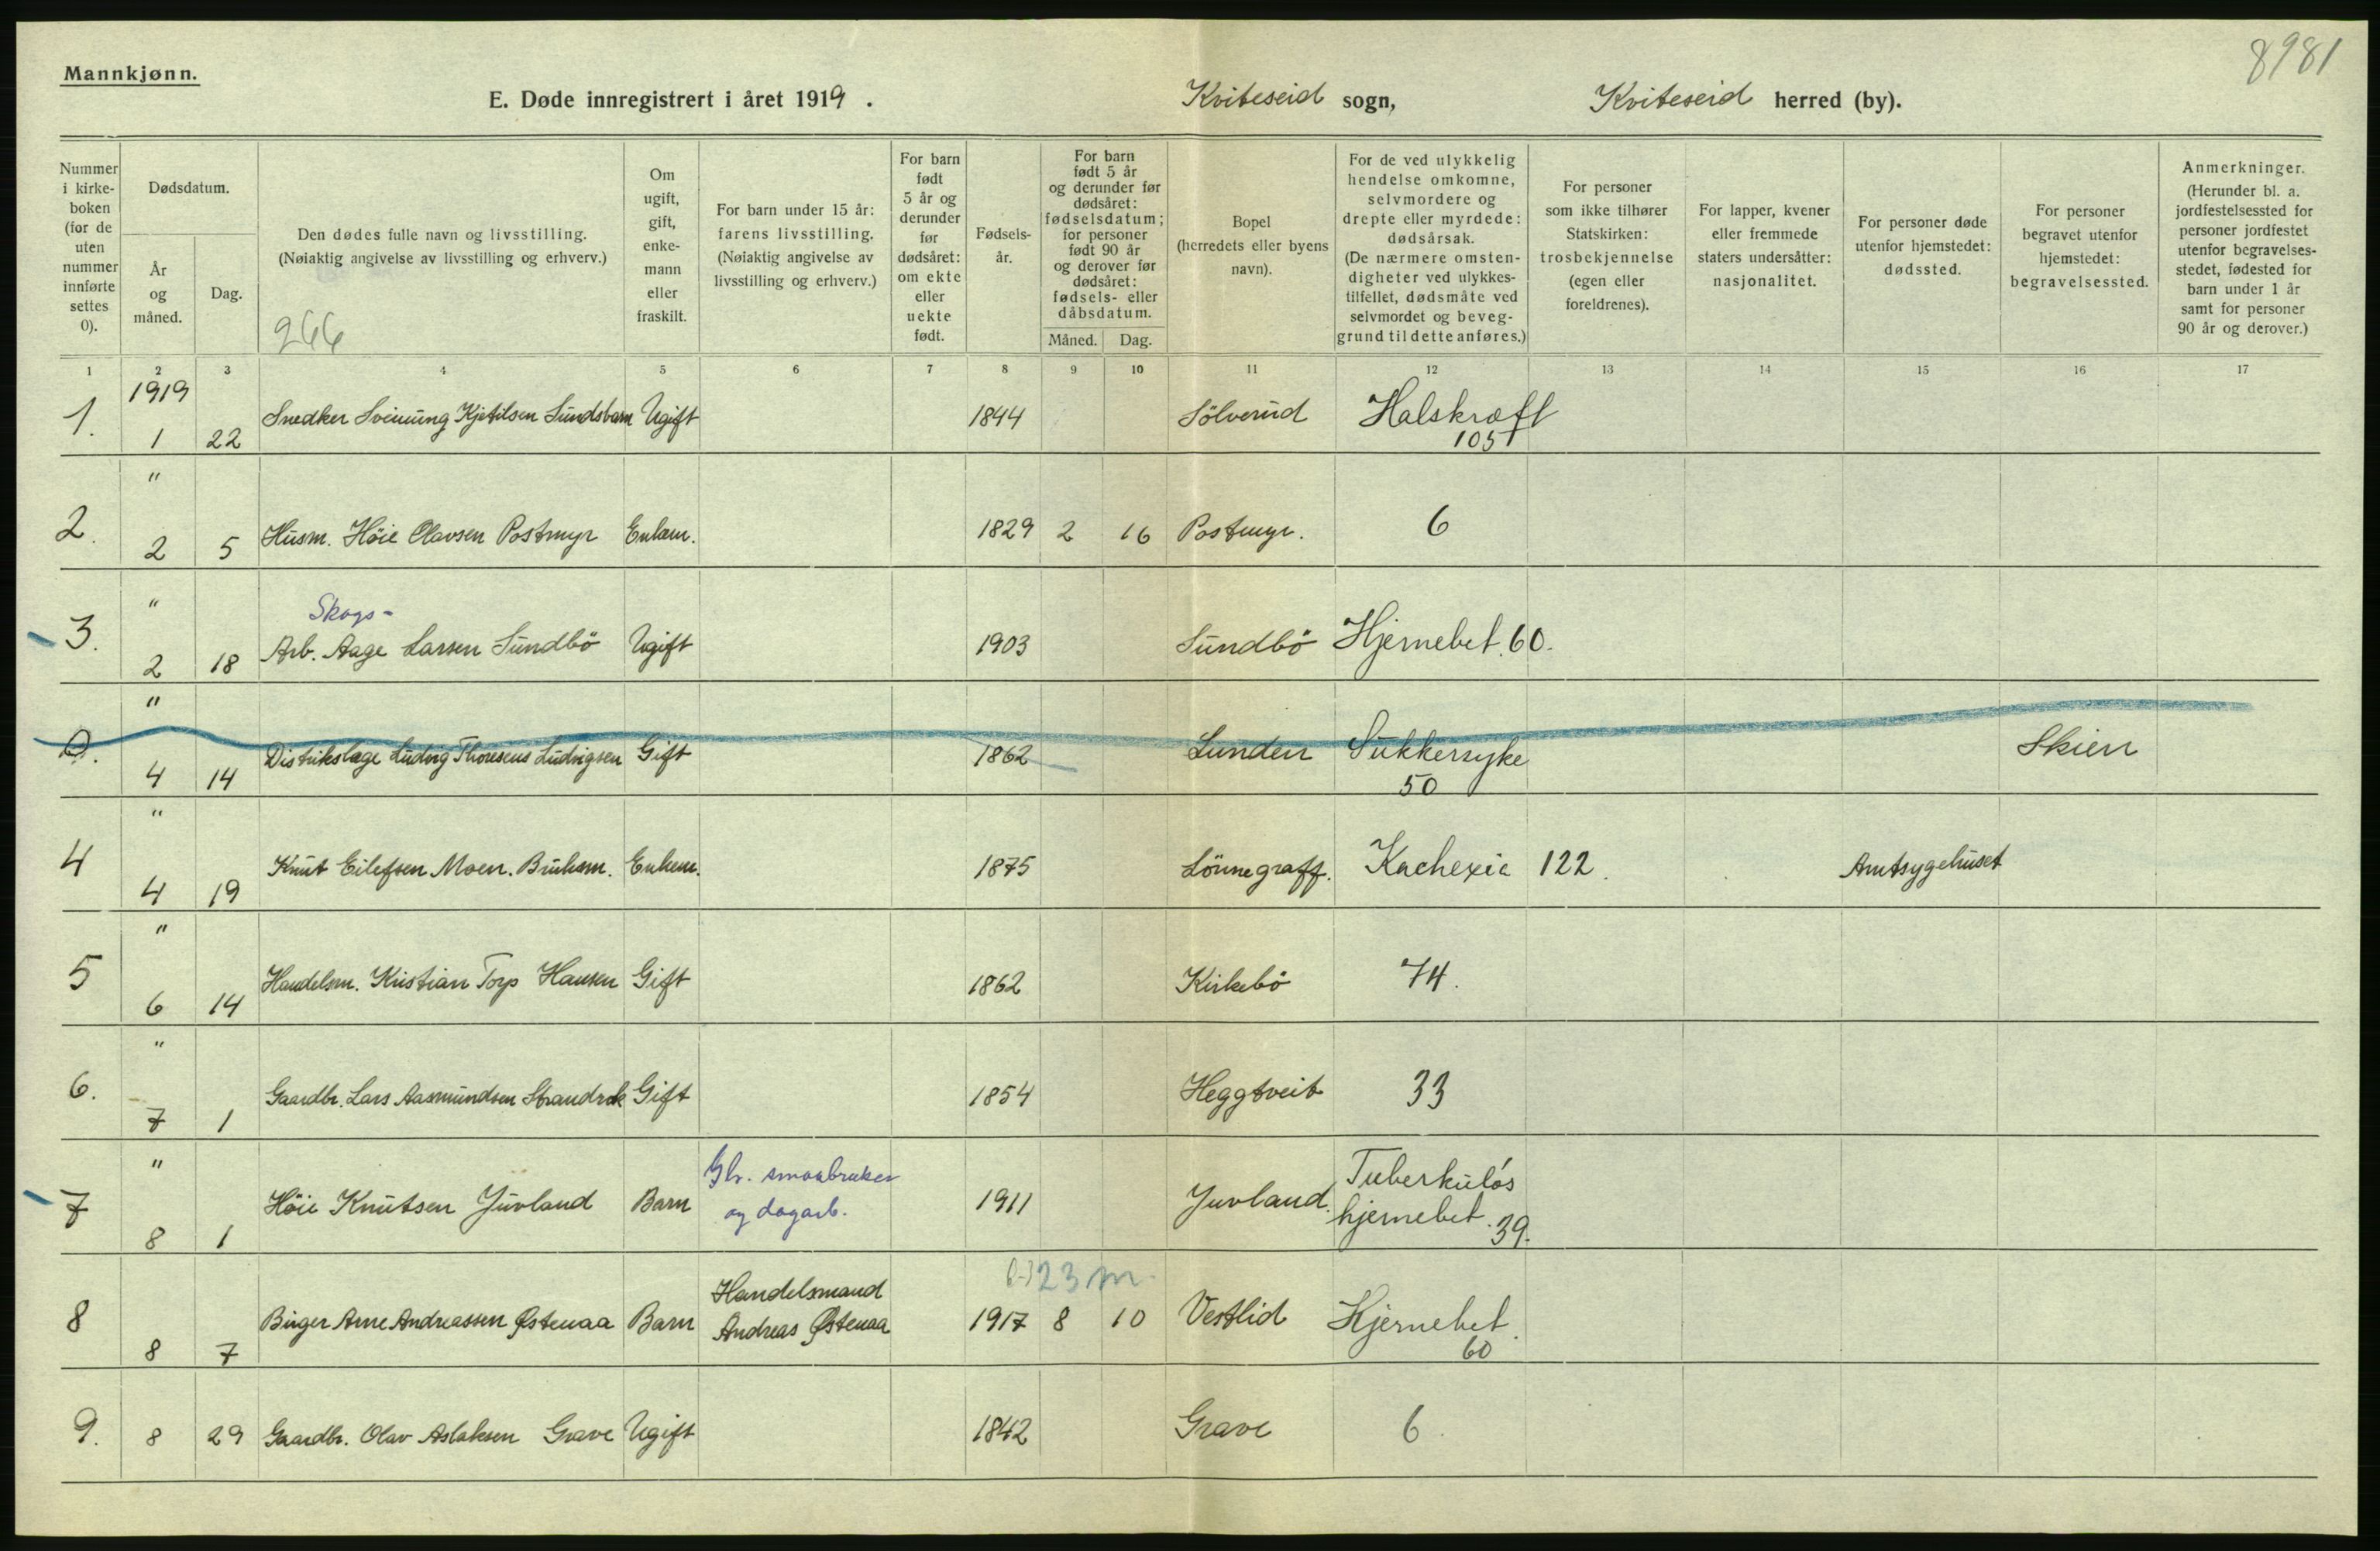 8981
Mannkjønn.
E. Døde innregistrert i året 1919. Kviteseid sogn, Kviteseid herred (by).
Nummer i kirke- boken (for de uten nummer innførte settes 0).
Dødsdatum.
År og måned.
Dag.
Den dødes fulle navn og livsstilling.
(Nøiaktig angivelse av livsstilling og erhverv.)
266
Om ugift, gift, enke- mann eller fraskilt.
For barn under 15 år: farens livsstilling. (Nøiaktig angivelse av livsstilling og erhverv.)
For barn født 5 år og derunder før dødsåret: om ekte eller uekte født.
Fødsels- år.
For barn født 5 år og derunder før dødsåret: fødselsdatum; for personer født 90 år og derover før dødsåret: fødsels- eller dåbsdatum.
Måned. Dag.
Bopel (herredets eller byens navn).
For de ved ulykkelig hendelse omkomne, selvmordere og drepte eller myrdede: dødsårsak. (De nærmere omsten- digheter ved ulykkes- tilfellet, dødsmåte ved selvmordet og beveg- grund til dette anføres.)
For personer som ikke tilhører Statskirken: trosbekjennelse (egen eller foreldrenes).
For lapper, kvener eller fremmede staters undersåtter: nasjonalitet.
For personer døde utenfor hjemstedet: dødssted.
For personer begravet utenfor hjemstedet: begravelsessted.
Anmerkninger. (Herunder bl. a. jordfestelsessted for personer jordfestet utenfor begravelses- stedet, fødested for barn under 1 år samt for personer 90 år og derover.)
1 2 3 4 5 6 7 8 9 10 11 12 13 14 15 16 17
1919
1. 1 22 Snedker Sveinung Kjetilsen Sundsbarm Ugift 1844 Sölverud Halskræft
105
"
2. 2 5 Husm. Höie Olavsen Postmyr Enkem. 1829 2 16 Postmyr. 6
"
Skogs-
3. 2 18 Arb. Aage Larsen Sundbö Ugift 1903 Sundbö Hjernebet. 60.
"
0. 4 14 Distrikslæge Ludvig Thoresens Ludvigsen Gift 1862 Lunden Sukkersyke Skien
50
"
4 4 19 Knut Eilefsen Moen. Bruksm. Enkem. 1875 Lönnegraff. Kachexia 122. Amtsygehuset
"
5 6 14 Handelsm. Kristian Torp Hansen Gift 1862 Kirkebö 74.
"
6. 7 1 Gaardbr. Lars Aasmundsen Strandrak Gift 1854 Heggtveit 33
"
7 8 1 Höie Knutsen Juvland Barn Gbr. smaabruker og dagarb. 1911 Juvland. Tuberkulós
hjernebet. 39.
23 m.
8 8 7 Birger Arne Andreassen Østenaa Barn Handelsmand Andreas Østenaa 1917 8 10 Vestlid Hjernebet.
60
9. 8 29 Gaardbr. Olav Aslaksen Grave Ugift 1842 Grave 6